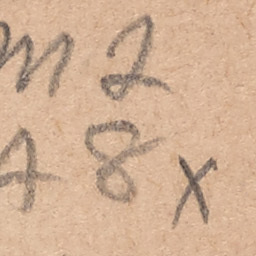 m 2
A 8 x